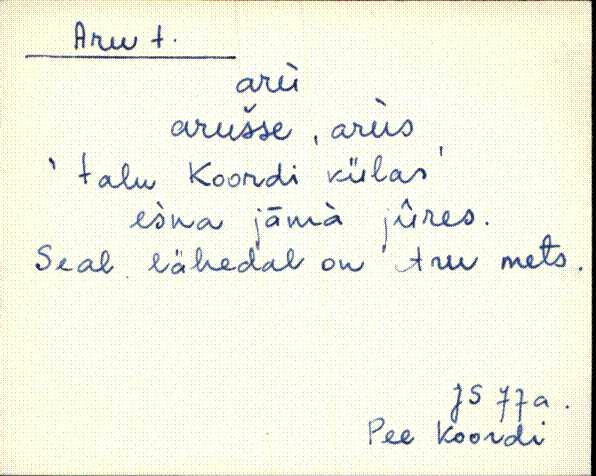 Aru t.
arù
arušse, arùs
'talu Koordi külas'
esna jāmà jûres.
Seal lähedal on Aru mets.
JS 77a.
Pee Koordi